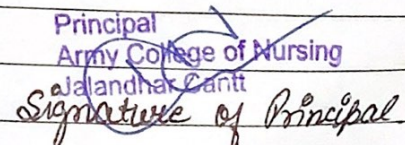 Principal
Army College of Nursing
Jalandhar Cantt
Signature of Principal